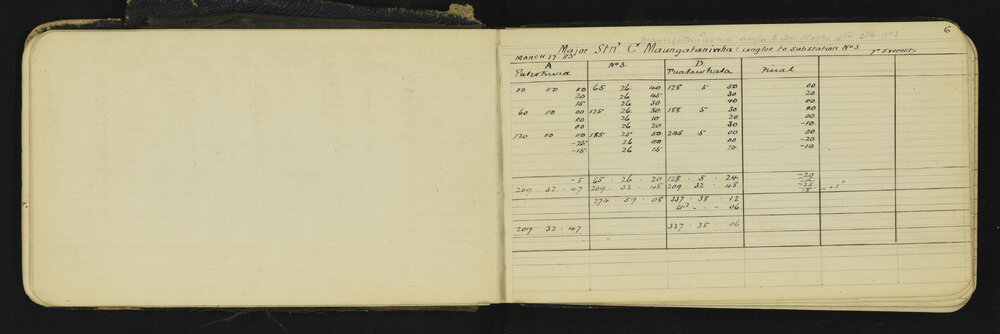 6
Maungataniwha angles to
Major Stn. C Maungataniwha: angles to Substation No 3.
MARCH 17 83
7" Everest
A No 3. D Final
Pukekura Puatawhata
00 00 00 65 26 40 128 5 50 00
20 26 45 30 20
15 26 30 40 00
60 00 00 125 26 30 188 5 30 00
00 26 10 20 00
00 26 20 30 -10
120 00 00 185 25 50 248 5 00 00
-25 26 00 00 -20
-15 26 15 20 -10
-5 65 . 26 . 20 128 . 5 . 24 -20
209 . 32 . 47 209 . 32 . 48 209 32 . 48 -25
+1"
274 59 . 08 337 . 38 . 12
06
209 . 32 . 47 337 . 38 . 06